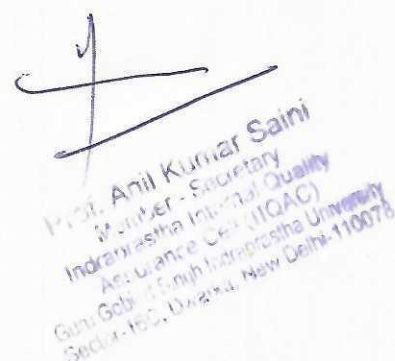 Prof. Anil Kumar Saini
Member - Secretary
Indraprastha Internal Quality
Assurance Cell (IIQAC)
Guru Gobind Singh Indraprastha University
Sector-16C, Dwarka, New Delhi-110078